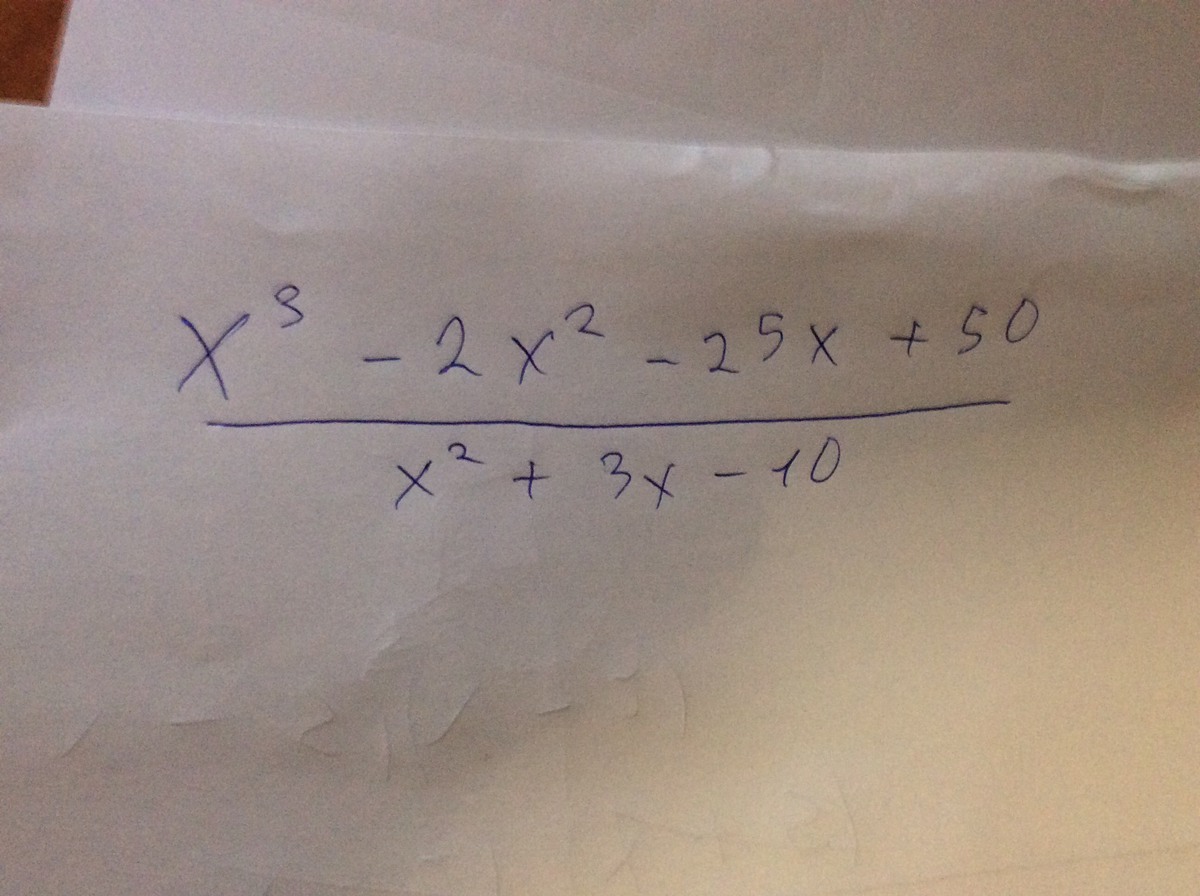 x³ - 2x² - 25x + 50
x² + 3x - 10